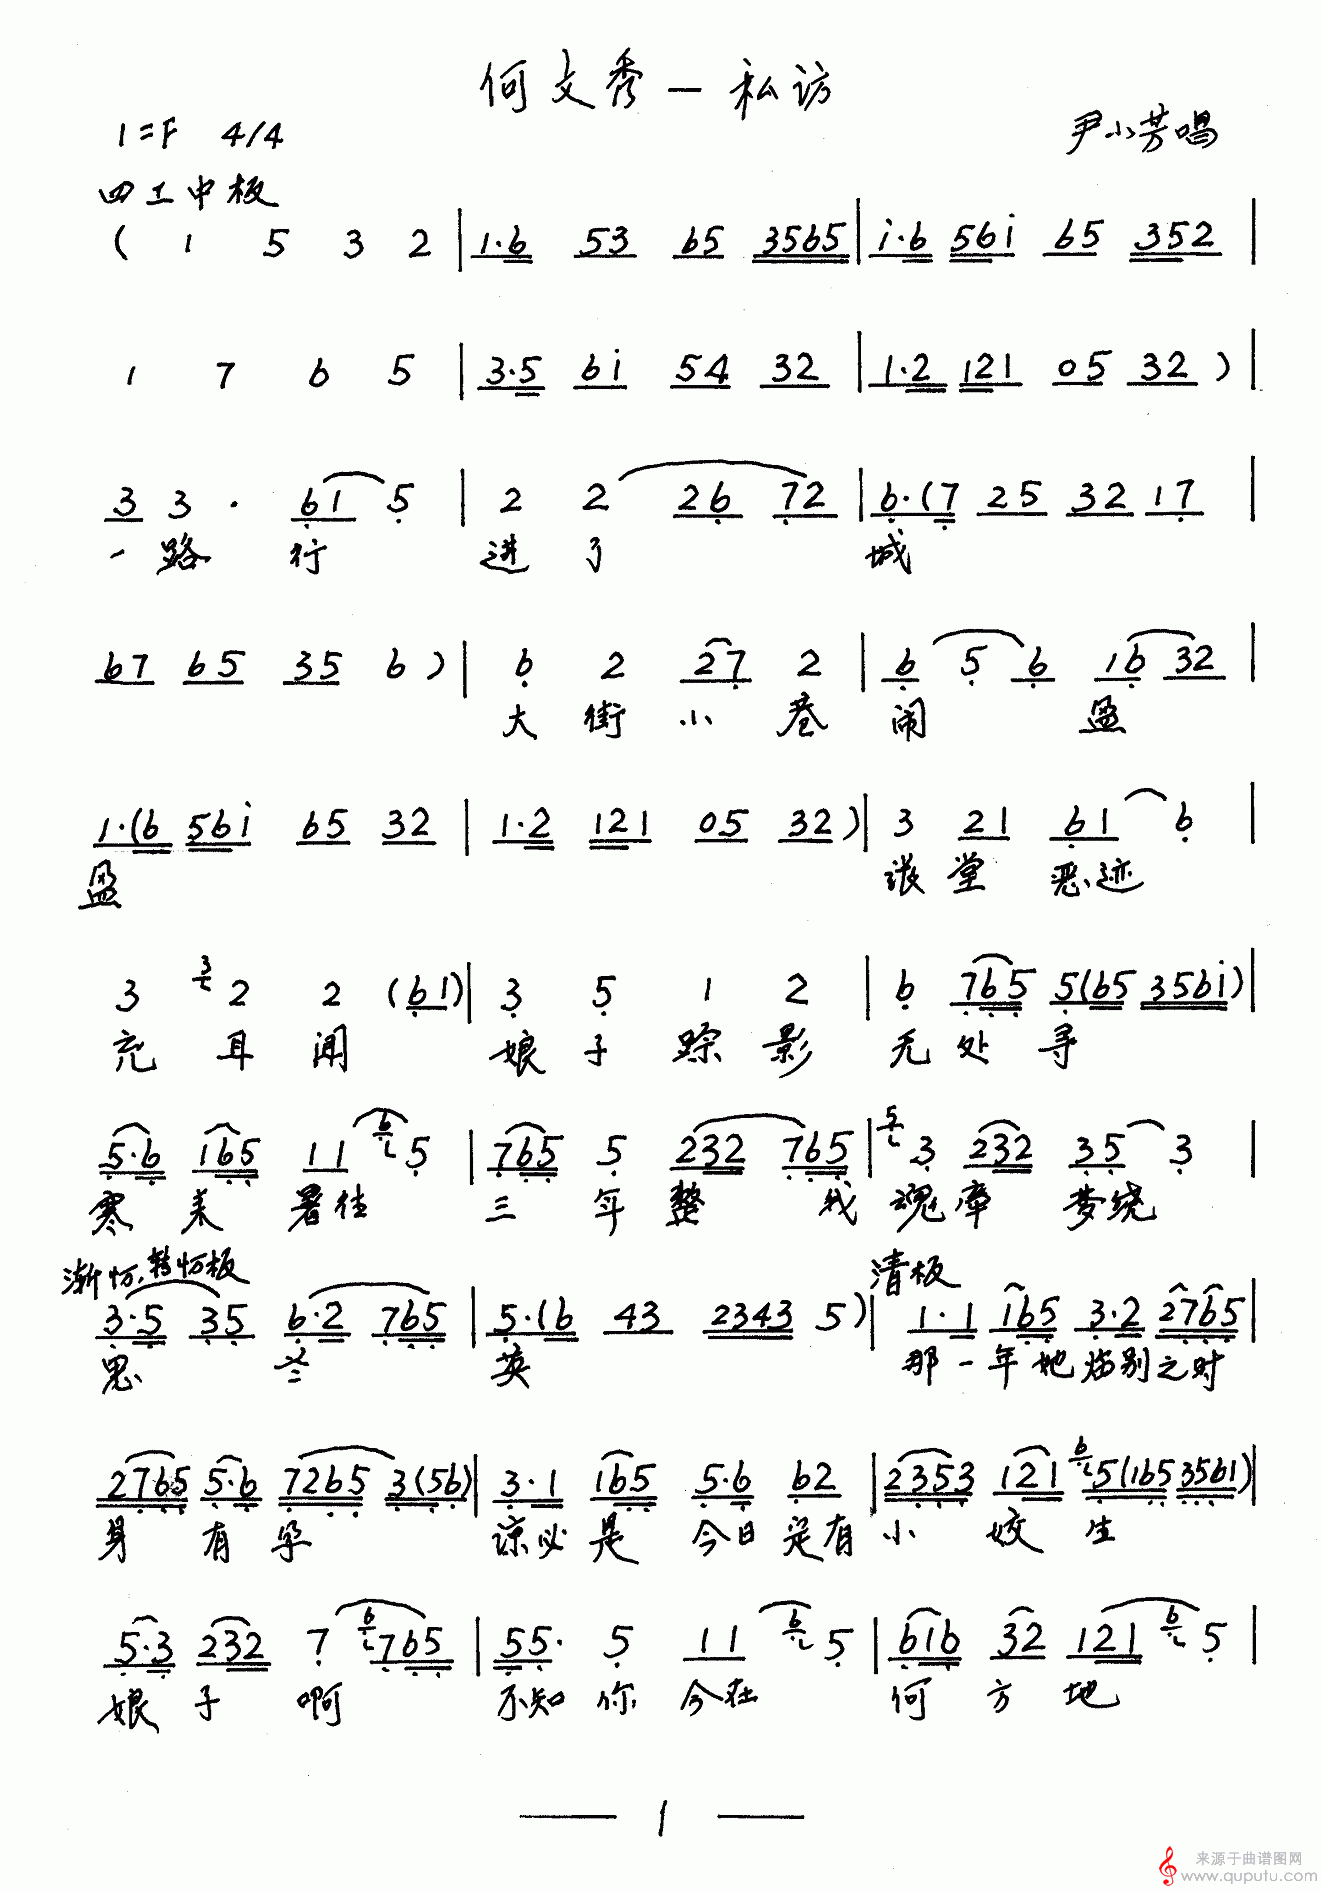 何文秀－私访
1=F 4/4
尹小芳唱
四工中板
( 1 5 3 2 | 1·6 53 65 3565 | i·6 56i 65 352 |
1 7 6 5 | 3·5 6i 54 32 | 1·2 121 05 32 ) |
3 3 · 61 5 | 2 2 26 72 | 6·(7 25 32 17 |
一路行 进了 城
67 65 35 6 ) | 6 2 27 2 | 6 5 6 16 32 |
大街小巷 闹 盈
1·(6 56i 65 32 | 1·2 121 05 32 ) | 3 21 61 6 |
盈 张堂恶迹
3 3 2 2 (61) | 3 5 1 2 | 6 765 5(65 356i) |
充耳闻 娘子踪影 无处寻
5·6 165 11 6 5 | 765 5 232 765 | 5 3 232 35 3 |
寒来暑往 三年整我 魂牵梦绕
渐忉,转忉板 清板
3·5 35 6·2 765 | 5·(6 43 2343 5 ) | 1·1 165 3·2 2765 |
思 英 那一年她临别之时
2765 5·6 7265 3(56) | 3·1 165 5·6 62 | 2353 121 6 5(165 3561) |
身有孕 谅必是今日是有 小姣生
5·3 232 7 6 765 | 55· 5 11 6 5 | 616 32 121 6 5 |
娘子啊 不知你今在 何方地
1
来源于曲谱图网
www.qupútu.com